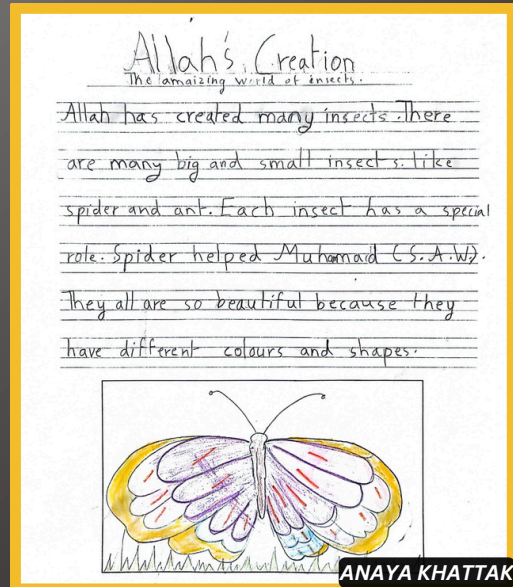 Allah's Creation
The amaizing world of insects.
Allah has created many insects. There
are many big and small insects. like
spider and ant. Each insect has a special
role. Spider helped Muhamaid (S.A.W).
They all are so beautiful because they
have different colours and shapes.
ANAYA KHATTAK